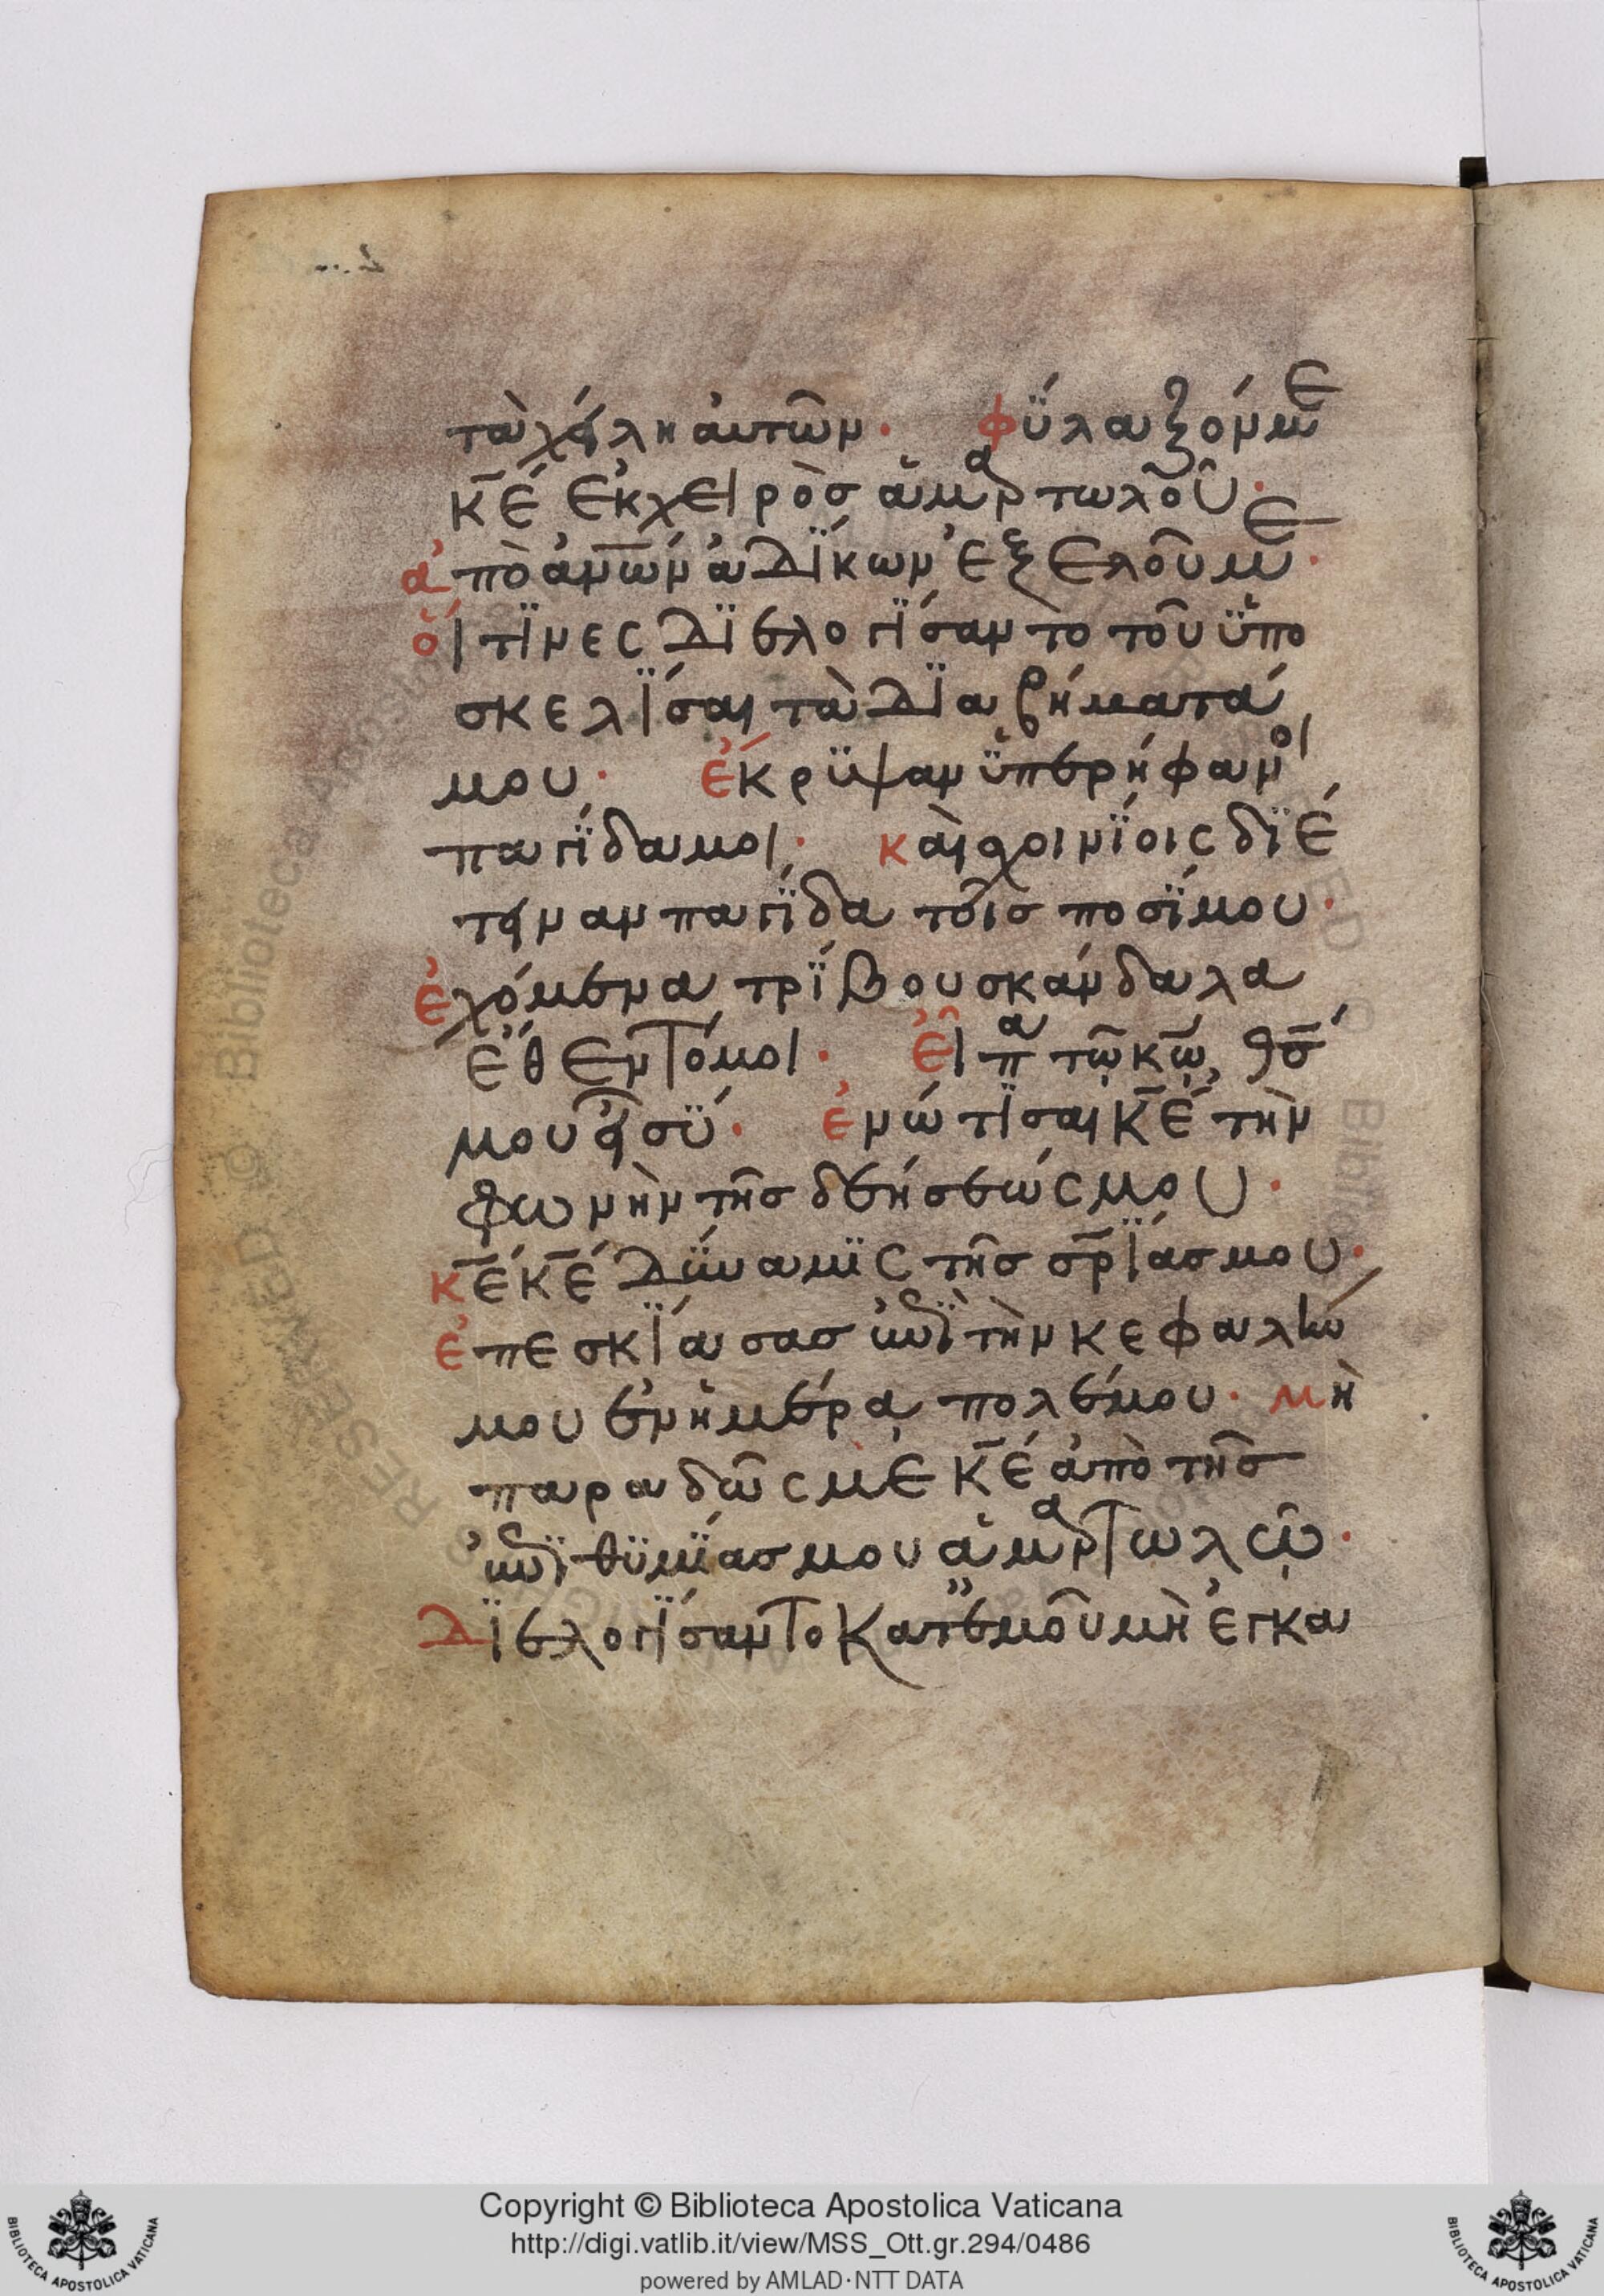 τὰ χείλη αὐτῶν· φύλαξόν με
κ̅ε̅ ἐκ χειρὸσ ἁμαρτωλοῦ·
ἀπὸ ἀν̅ω̅ν ἀδίκων ἐξελοῦ με·
οἵτινες διελογίσαντο τοῦ ὑπο
σκελίσαι τὰ διαβήματά
μου· ἔκρυψαν ὑπερήφανοι
παγίδα μοι· καὶ σχοινίοις διέ
τειναν παγίδα τοῖσ ποσί μου·
ἐχόμενα τρίβου σκάνδαλα
ἔθεντό μοι· εἶπα τῷ κ̅ῳ̅ θ̅σ̅
μου εἶ σύ· ἐνώτισαι κ̅ε̅ τὴν
φωνὴν τῆσ δεήσεώς μου·
κ̅ε̅ κ̅ε̅ δύναμις τῆσ σ̅ρ̅ίασ μου·
ἐπεσκίασασ ἐπὶ τὴν κεφαλήν
μου ἐν ἡμέρᾳ πολέμου· μὴ
παραδῶς με κ̅ε̅ ἀπὸ τῆσ
ἐπιθυμίασ μου ἁμαρτωλῷ·
διελογίσαντο κατ' ἐμοῦ μὴ ἐγκα
Copyright © Biblioteca Apostolica Vaticana
http://digi.vatlib.it/view/MSS_Ott.gr.294/0486
powered by AMLAD·NTT DATA
BIBLIOTECA APOSTOLICA VATICANA
BIBLIOTECA APOSTOLICA VATICANA